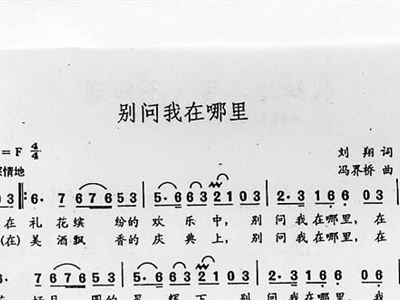 别问我在哪里
= F 4/4
刘 翔 词
情地
冯界桥 曲
03 6· 7 676 53 5·663 2103 2·3 166 03
在 礼 花 缤 纷的 欢 乐 中， 别 问 我在 哪里， 在
(在) 美 酒飘 香的 庆 典 上， 别 问 我在 哪里， 在
03 6· 7 676 53 5·663 2103 2·3 16